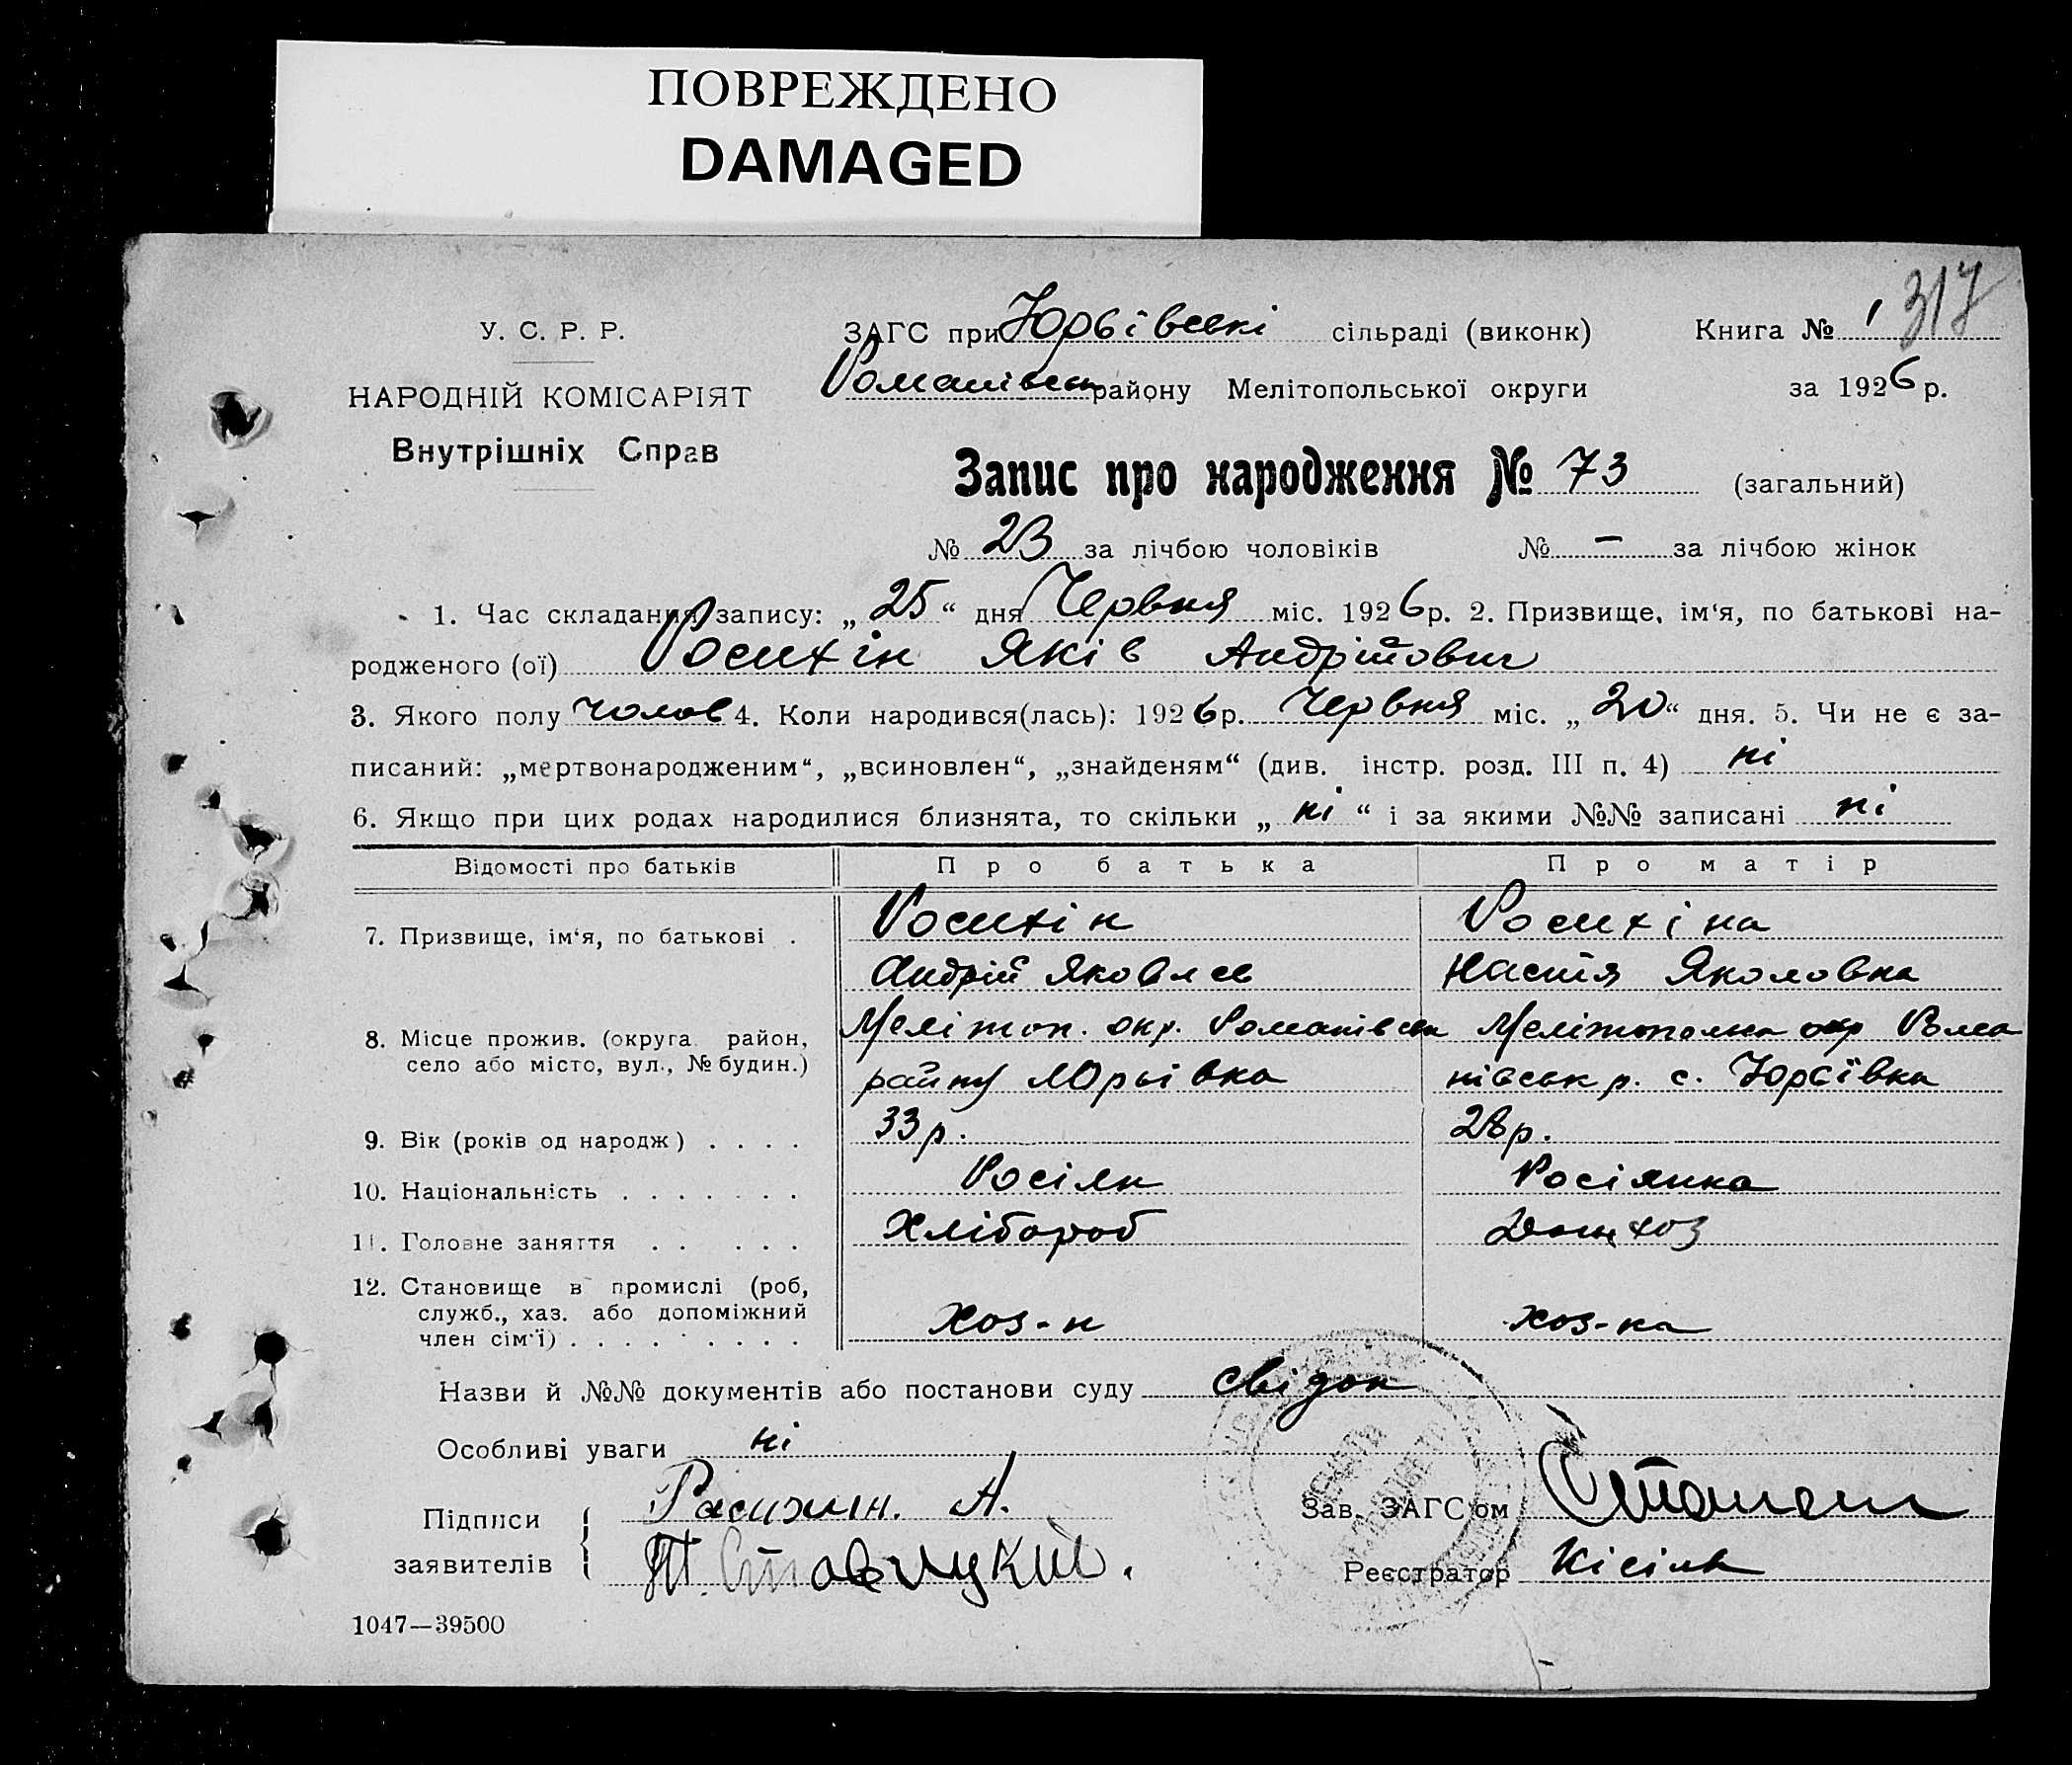 ПОВРЕЖДЕНО
DAMAGED
317
У. С. Р. Р.
НАРОДНІЙ КОМІСАРІЯТ
Внутрішніх Справ
ЗАГС при Юрьївські сільраді (виконк) Книга № 1
Романівськ району Мелітопольської округи за 1926 р.
Запис про народження № 73 (загальний)
№ 23 за лічбою чоловіків № — за лічбою жінок
1. Час складання запису: „25“ дня Червня міс. 1926 р. 2. Призвище, ім‘я, по батькові на-
родженого (ої) Росихін Яків Андрійович
3. Якого полу чолов 4. Коли народився(лась): 1926 р. Червня міс. „20“ дня. 5. Чи не є за-
писаний: „мертвонародженим“, „всиновлен“, „знайденям“ (див. інстр. розд. III п. 4) ні
6. Якщо при цих родах народилися близнята, то скільки „ні“ і за якими №№ записані ні
Відомості про батьків Про батька Про матір
7. Призвище, ім‘я, по батькові . Росихін Росихіна
Андрій Яковлев Настя Яколовна
8. Місце прожив. (округа район, Мелітоп. окр. Романівськ Мелітополька окр Рома
село або місто, вул., № будин.) району Юрьівка нівськ р. с. Юрьївка
9. Вік (років од народж) . . . . 33 р. 28 р.
10. Національність . . . . . . . Росіян Росіянка
11. Головне заняття . . . . . Хлібороб Домхоз
12. Становище в промислі (роб,
служб., хаз. або допоміжний
член сім‘ї) . . . . . . . . Хоз-н хоз-ка
Назви й №№ документів або постанови суду свідок
Особливі уваги ні
Підписи
заявителів
Расихин. А.
Зав. ЗАГС‘ом
Реєстратор Кісіль
1047—39500